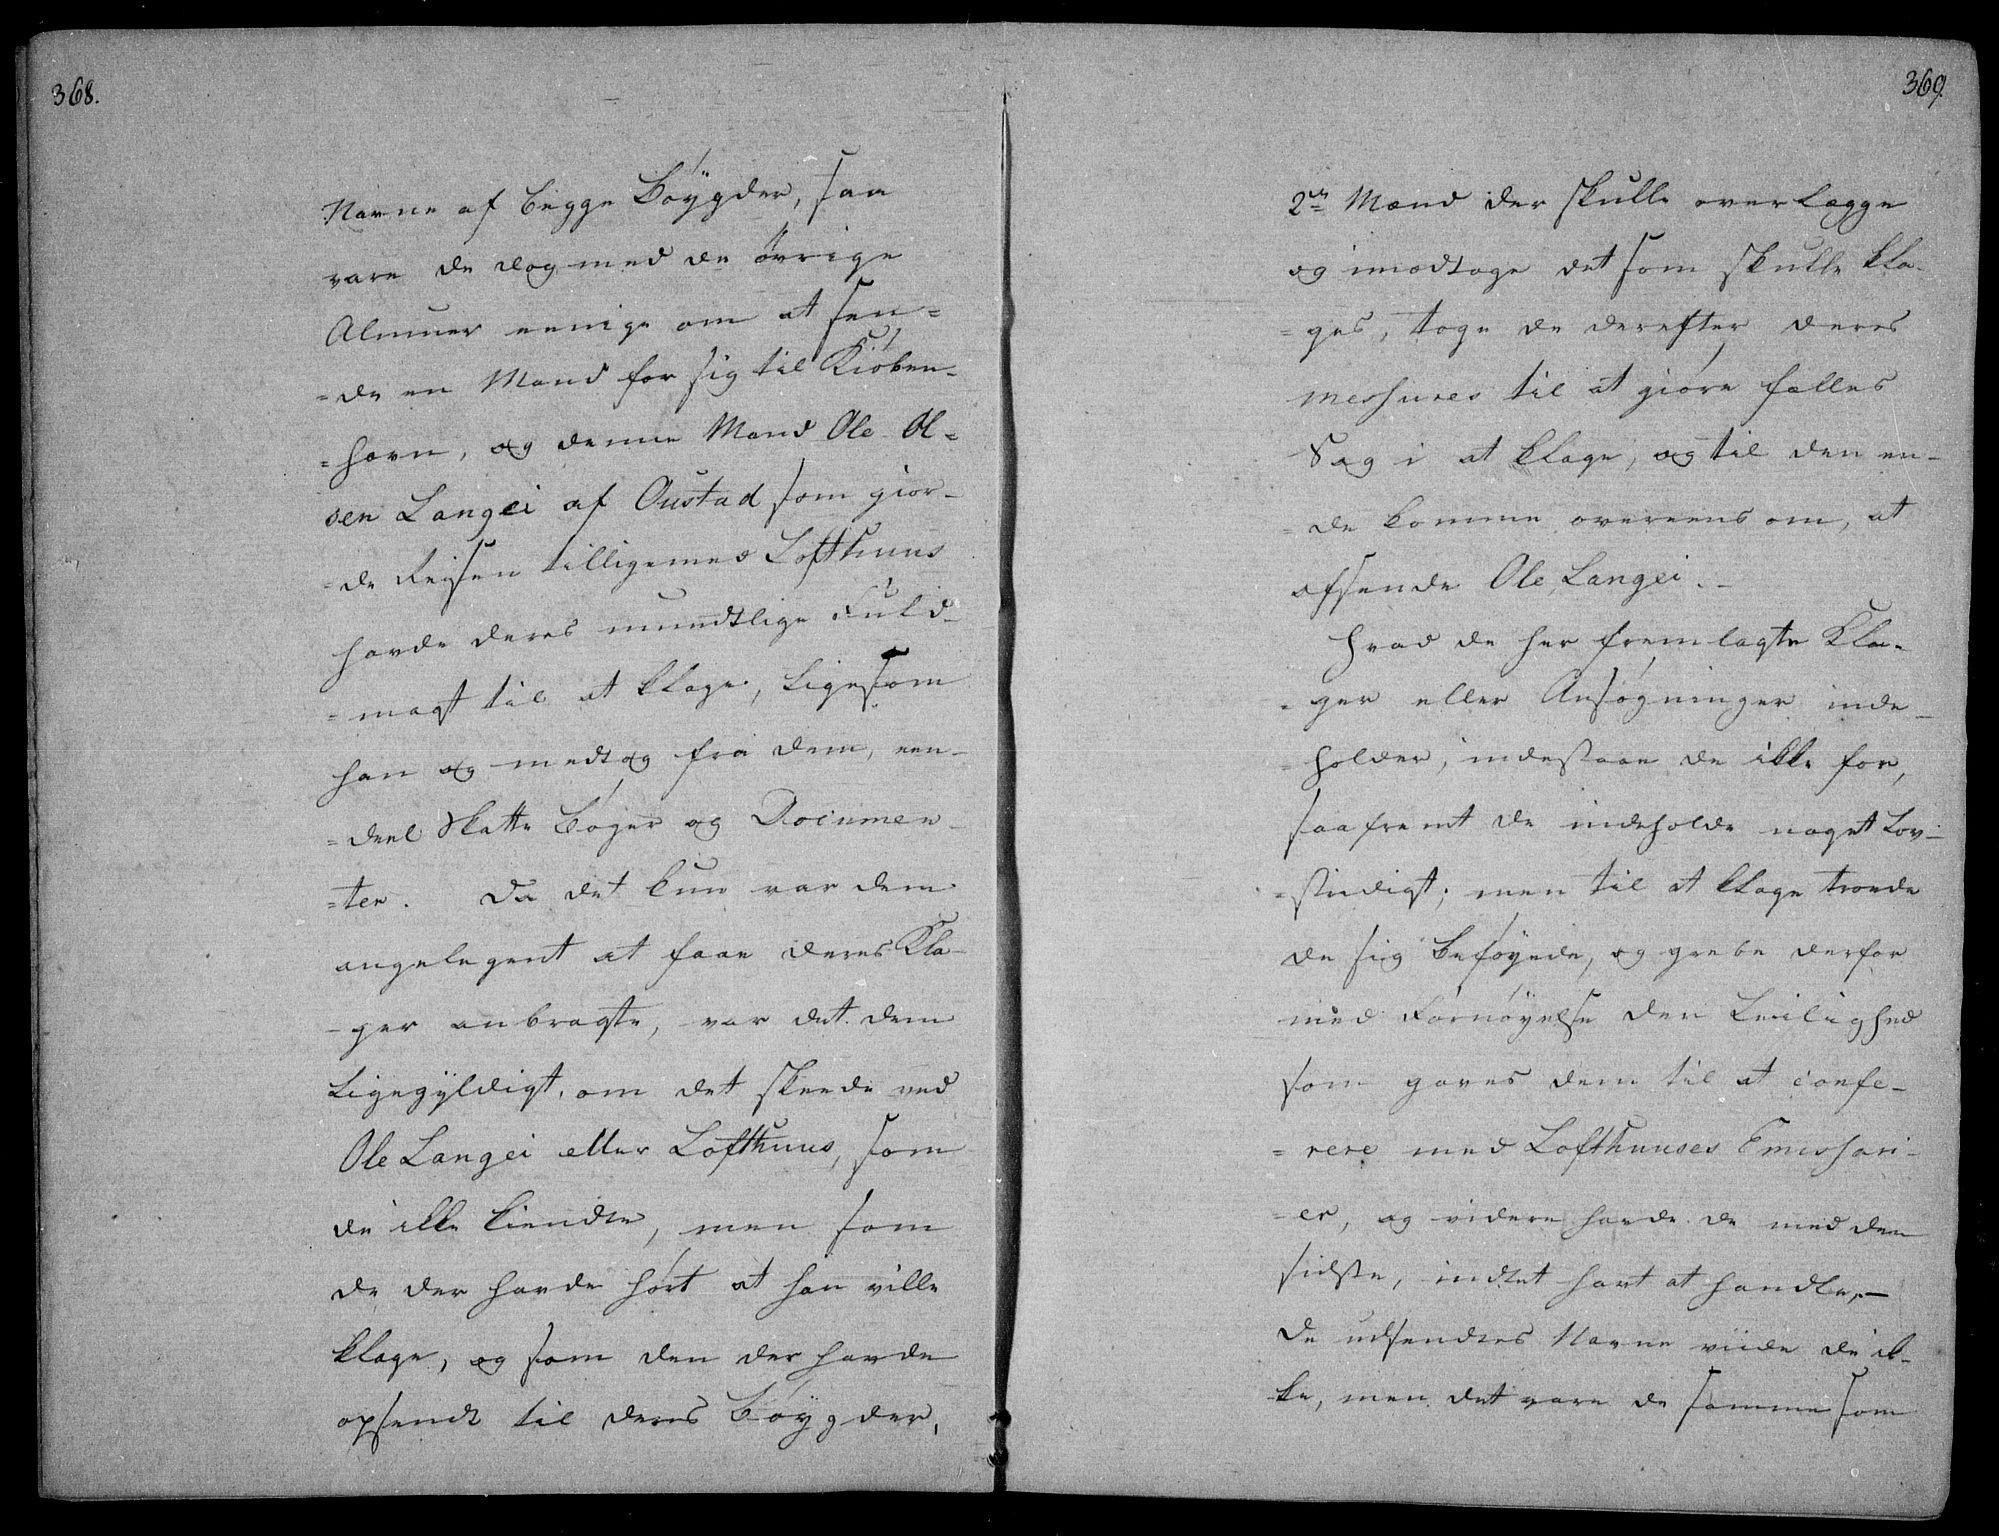 368.
Navne af begge Bøygder, saa
vare de dog med de øvrige
Almuer eenige om at sen=
=de en Mand for sig til Kiøben=
=havn, og denne Mand Ole Ol=
sen Langei af Oustad som gior=
=de Reysen tilligemed Lofthuus
havde deres mundtlige Fuld=
=magt til at klage, ligesom
han og medtog fra dem, een=
=deel Skatte Bøger og Documen=
=ter. Da det kun var dem
angelegent at faae deres Kla=
=ger anbragte, var det dem
ligegyldigt, om det skeede ved
Ole Langei eller Lofthuus, som
de ikke kiendte, men som
de der havde hørt at han ville
klage, og som den der havde
opsendt til deres Bøygder,
369.
2de Mænd der skulle overlægge
og imodtage det som skulle kla=
=ges, toge de derefter deres
messures til at giøre fælles
Sag i at klage, og til den en=
=de komme overeens om, at
afsende Ole Langei. -
Hvad de her fremlagte Kla=
=ger eller Ansøgninger inde=
=holder, indestaae de ikke for,
saafremt de indeholde noget Lov=
=stridigt; men til at klage troede
de sig beføyede, og grebe derfor
med Fornøyelse den Leilighed
som gaves dem til at confe=
=rere med Lofthuuses Emissari=
=er, og videre havde de med den
sidste, indtet havt at handle. -
De udsendtes Navne viide de ik=
ke, men det vare de samme som